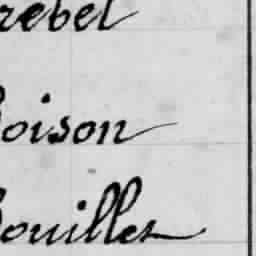 rebel
oison
ouillet